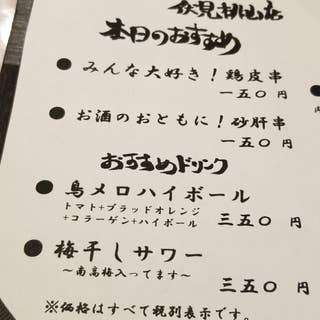 伏見桃山店
本日のおすすめ
● みんな大好き！鶏皮串
一五〇 円
● お酒のおともに！砂肝串
一五〇 円
おすすめドリンク
● 鳥メロハイボール
トマト+ブラッドオレンジ
+コラーゲン+ハイボール 三五〇 円
● 梅干しサワー
～南高梅入ってます～ 三五〇 円
※価格はすべて税別表示です。